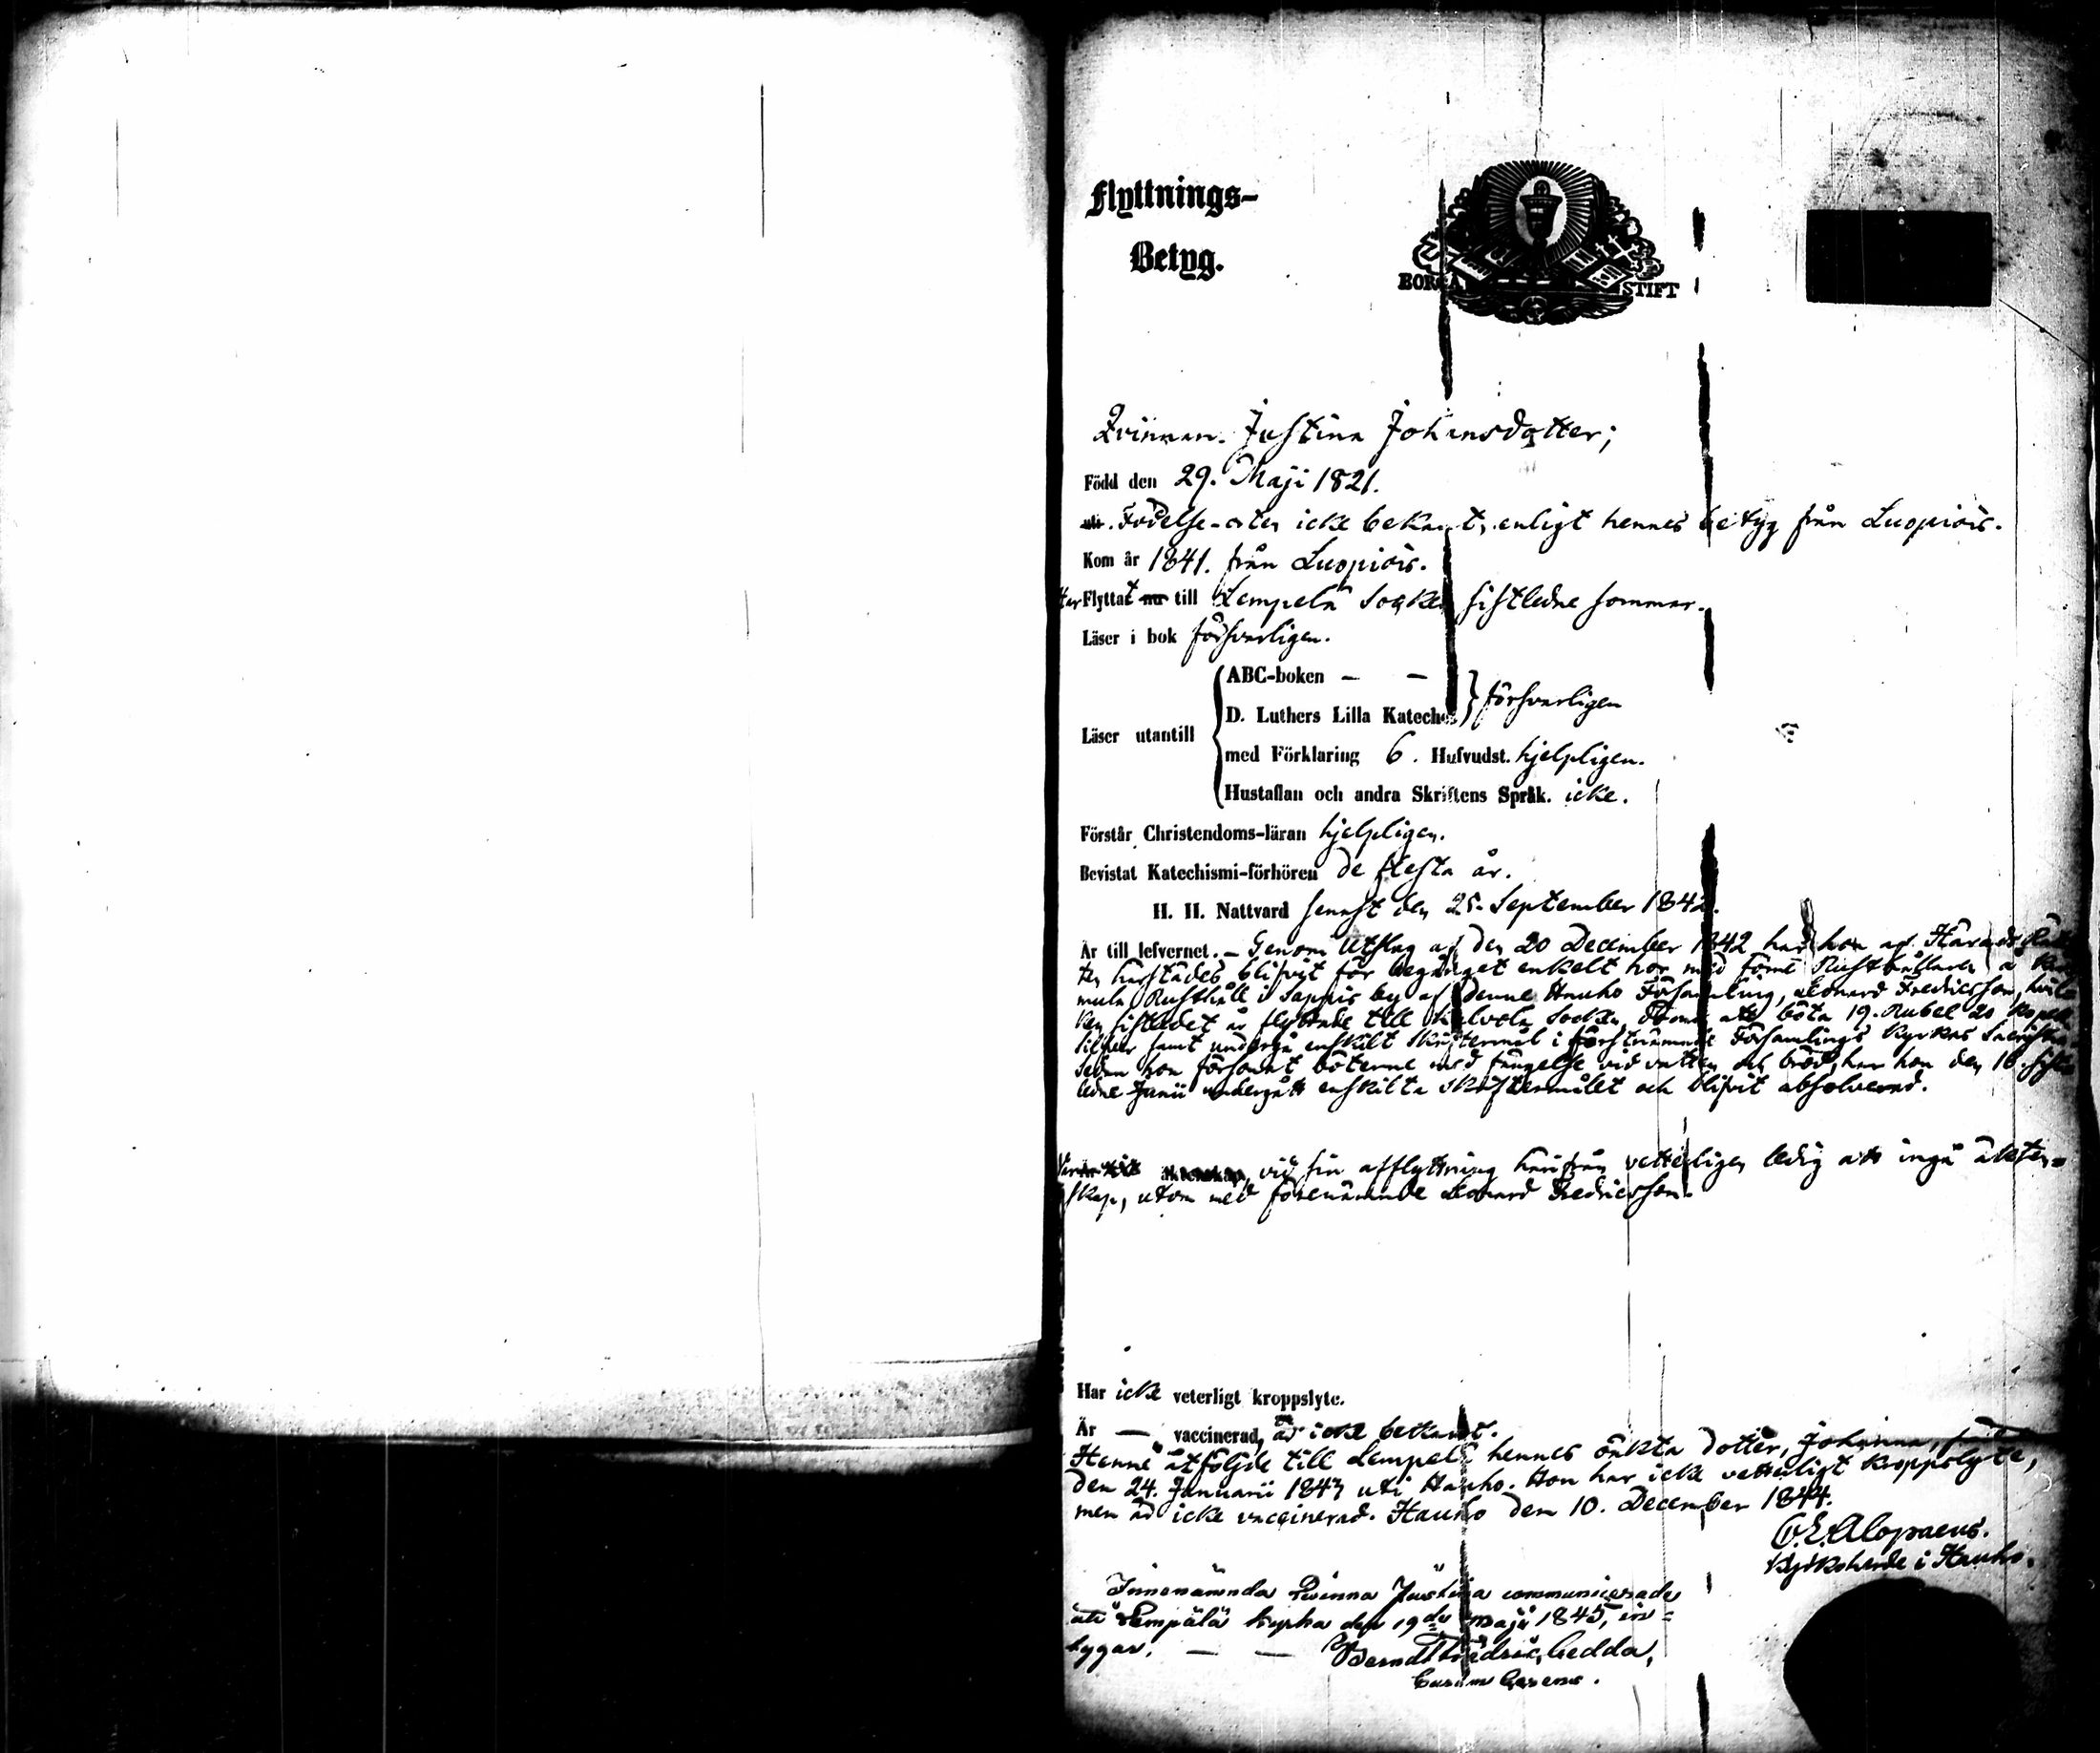 Flyttnings-
Betyg.
BORGÅ STIFT
Qvinnan Justina Johansdotter;
Född den 29. Maji 1821.
uti. Födelse-orten icke bekant, enligt hennes betyg från Luopiois.
Kom år 1841. från Luopiois.
Har Flyttat nu till Lempelä Socken sistledne sommar.
Läser i bok försvarligen.
ABC-boken — —
D. Luthers Lilla Kateches försvarligen
Läser utantill
med Förklaring 6. Hufvudst. hjelpligen.
Hustaflan och andra Skriftens Språk. icke.
Förstår Christendoms-läran hjelpligen.
Bevistat Katechismi-förhören de flesta år.
H. H. Nattvard sennst den 25. September 1842.
Är till lefvernet. – Genom Utslag af den 20 December 1842 har hon af Härads Rät-
ten härstädes blifvit för begånget enkelt hor med förre Rusthållaren å
mula Rusthåll i Sappis by af denne Hauho Församling, Leonard Fredricsson, hvil-
ken sistledet år flyttade till Kalvola Socken, dömd att böta 19. Rubel 20 Kopek
silfver samt undergå enskilt skriftermål i förstnämnde Församlings Kyrkas Sacristia.
Sedan hon försonat böterne med fängelse vid vatten och bröd, har hon den 16. sist-
ledne Junii undergått enskilta skriftermålet och blifvit absolverad.
Var är till äktenskap, vid sin afflyttning härifrån vetterligen ledig att ingå äkten-
skap, utom med förenämnde Leonard Fredricsson.
Har icke veterligt kroppslyte.
Är — vaccinerad, är icke bekant.
Henne åtföljde till Lempelä hennes oäkta dotter, Johanna, född
den 24. Januarii 1843 uti Hauho. Hon har icke vetterligt kroppslyte,
men är icke vaccinerad. Hauho den 10. December 1844.
C. E. Alopaeus.
Kyrkoherde i Hauho.
Innenämnda Qvinna Justina communicerade
uti Lempälä kyrka den 19de Maji 1845, in-
tygar. — — Berndt Fredric Gedda,